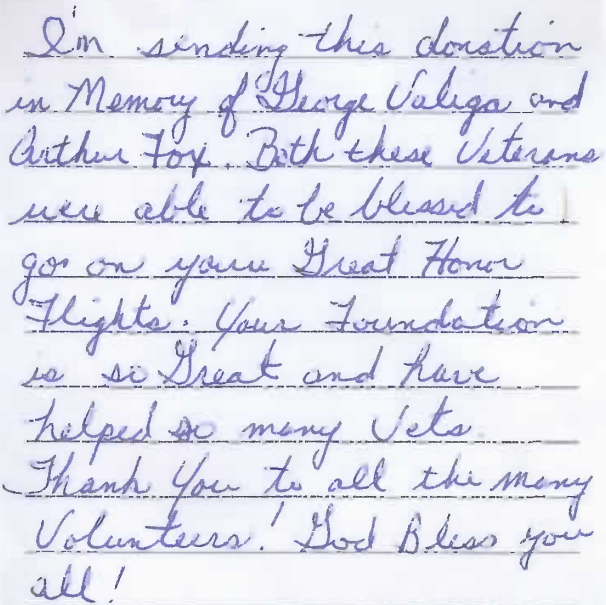 I'm sending this donation
in Memory of George Valega and
Arthur Fox. Both these Veterans
were able to be blessed to
go on youre Great Honor
Flights. Your Foundation
is so Great and have
helped so many Vets
Thank You to all the many
Volunteers! God Bless you
all!